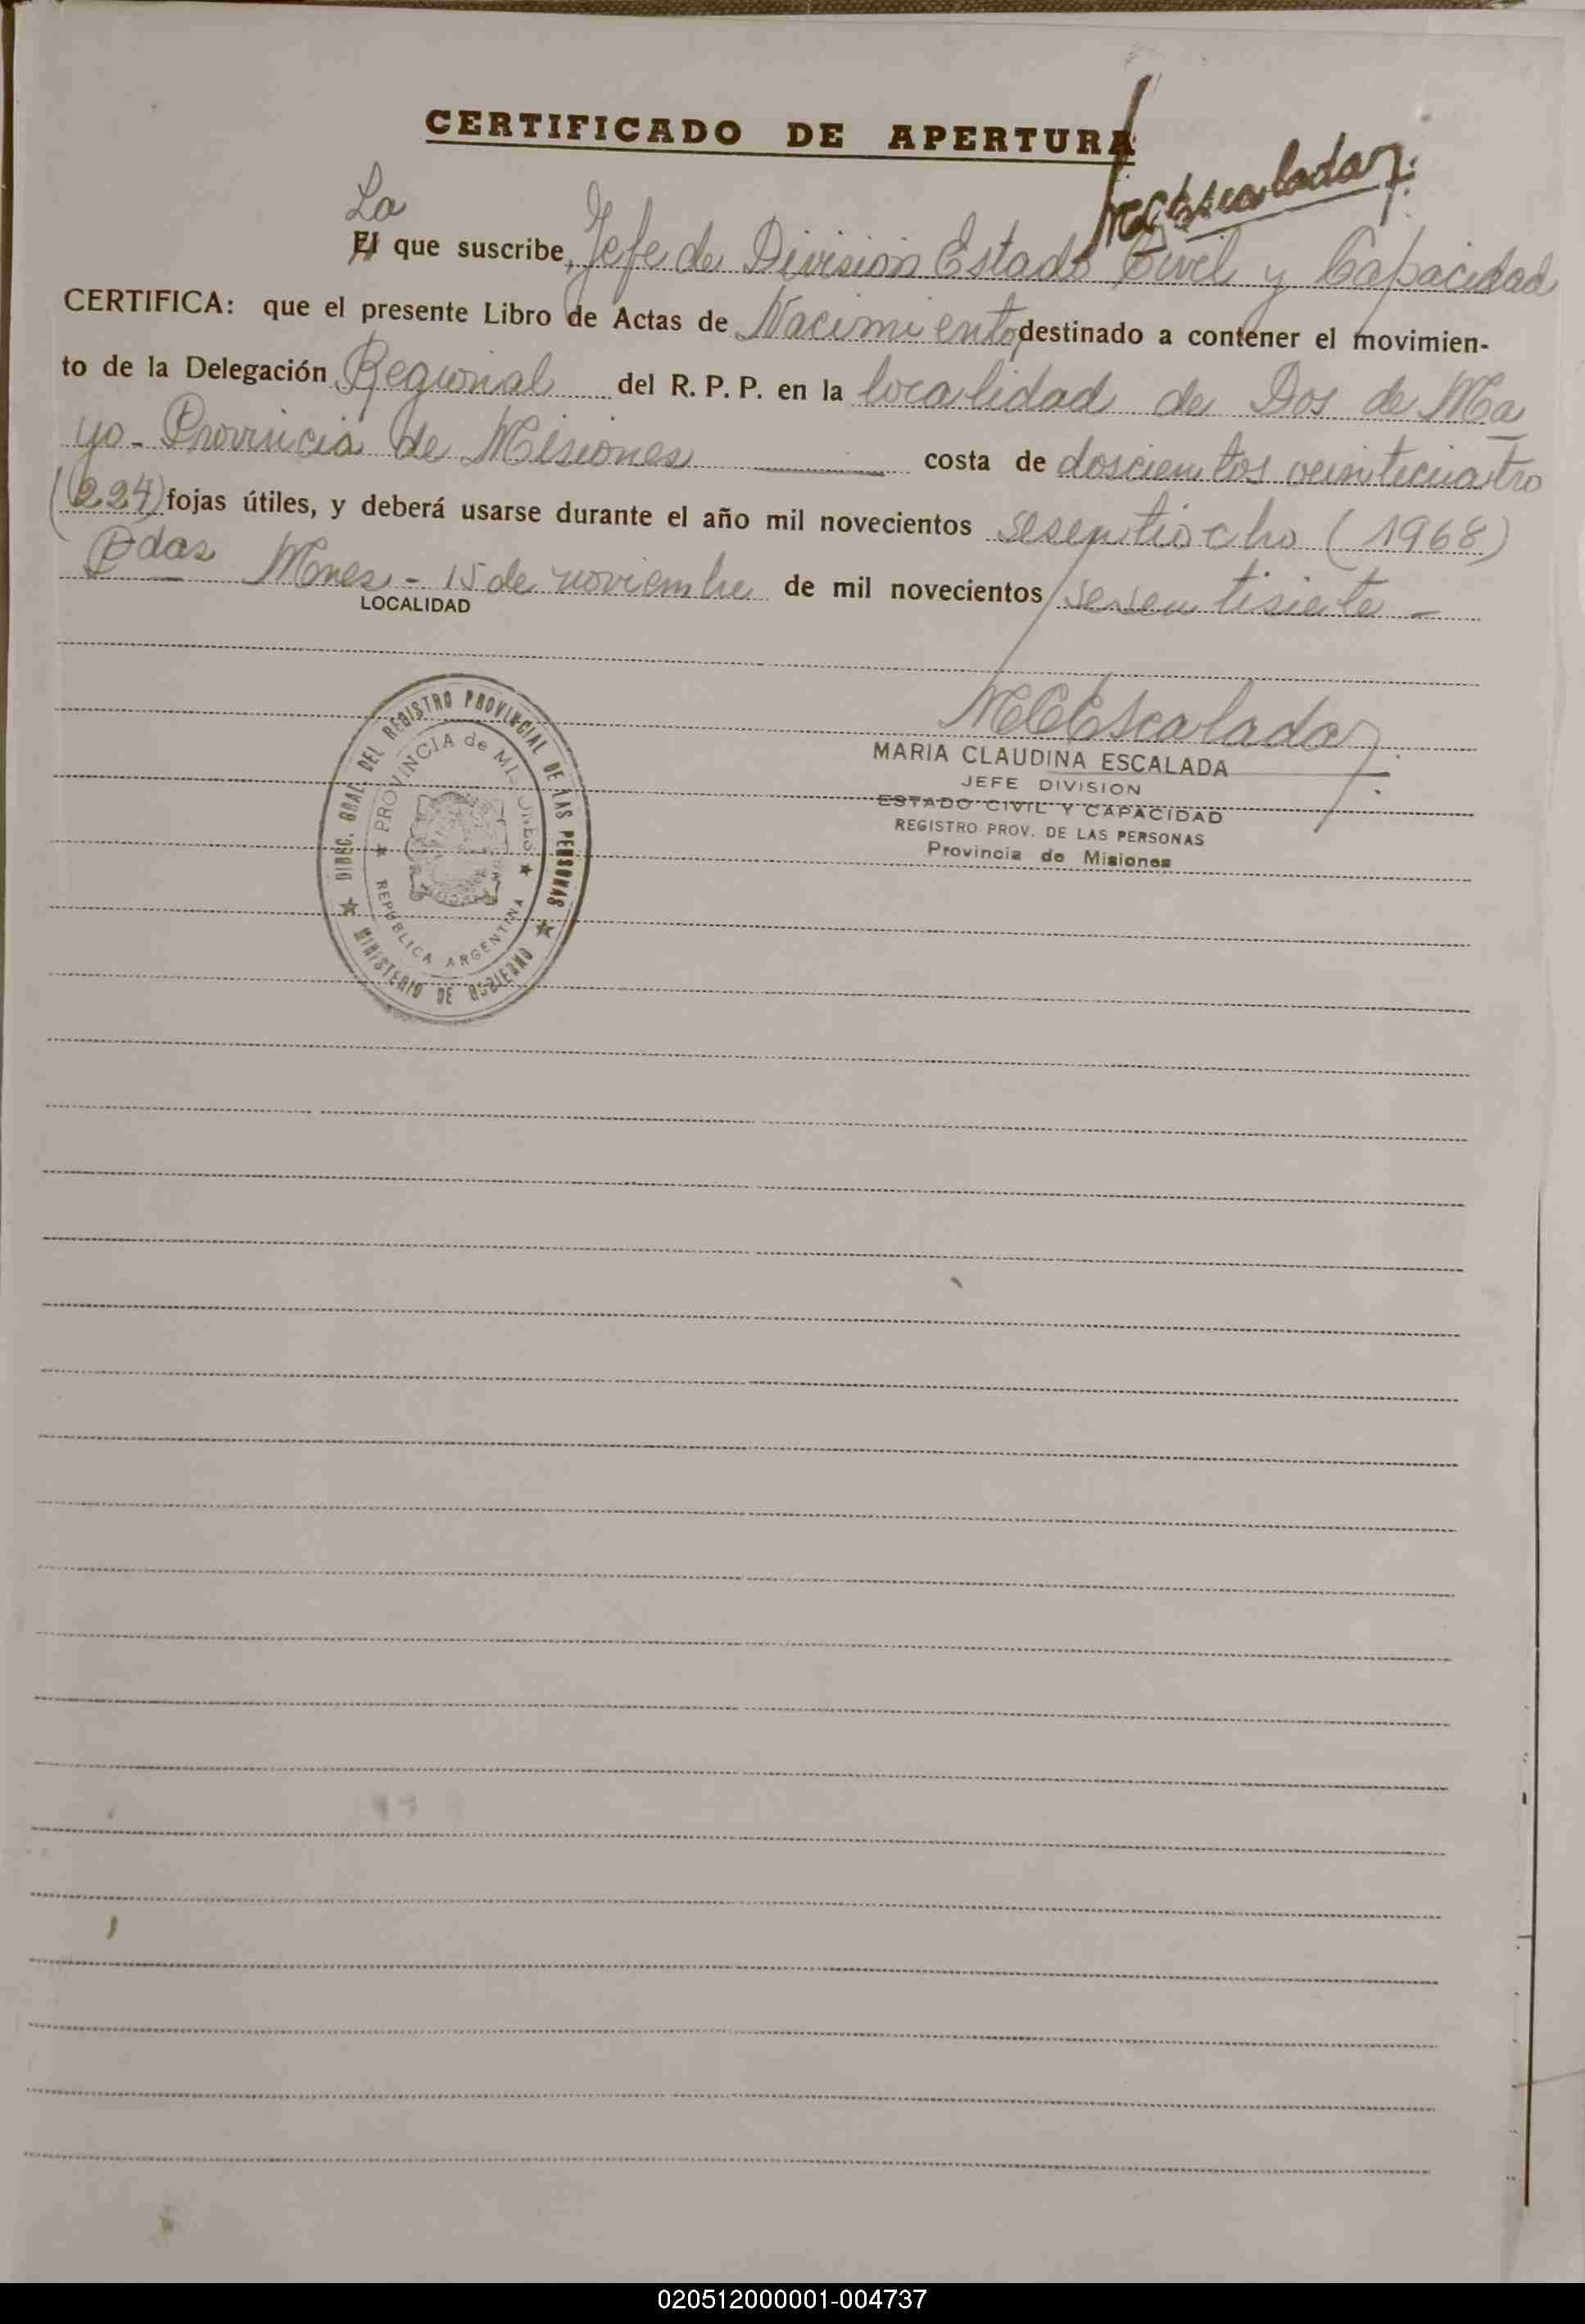 CERTIFICADO DE APERTURA
MCEscalada
La
El que suscribe, Jefe de Division Estado Civil y Capacidad
CERTIFICA: que el presente Libro de Actas de Nacimiento, destinado a contener el movimien-
to de la Delegación Regional del R. P. P. en la localidad de Dos de Ma
yo - Provincia de Misiones costa de doscientos veinticuatro
(224) fojas útiles, y deberá usarse durante el año mil novecientos sesentiocho (1968)
Pdas Mnes - 15 de noviembre de mil novecientos sesentisiete -
LOCALIDAD
MCEscalada
MARIA CLAUDINA ESCALADA
JEFE DIVISION
ESTADO CIVIL Y CAPACIDAD
REGISTRO PROV. DE LAS PERSONAS
Provincia de Misiones
DIREC. GRAL. DEL REGISTRO PROVINCIAL DE LAS PERSONAS
MINISTERIO DE GOBIERNO
PROVINCIA de MISIONES
REPUBLICA ARGENTINA
020512000001-004737